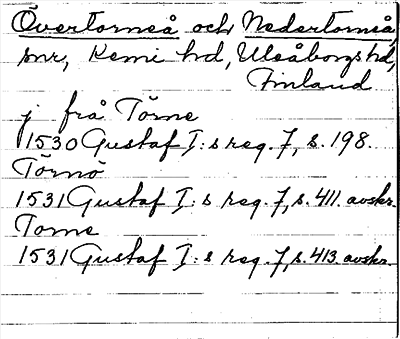 Övertorneå och Nedertorneå
snr, Kemi hd, Uleåborgs hd,
Finland
j frå Törne
1530 Gustaf I:s reg. 7, s. 198.
Törnö
1531 Gustaf I:s reg. 7, s. 411. avskr.
Torne
1531 Gustaf I:s reg. 7, s. 413. avskr.